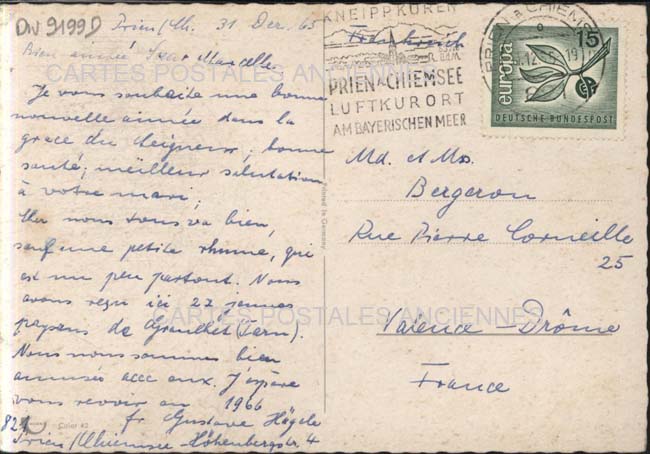 DW 9199D
Prien/Ch. 31 Dez. 65
Bien aimée Soeur Marcelle.
Je vous souhaite une bonne
nouvelle année dans la
grace du Seigneur, bonne
santé, meilleur salutation
à votre mari,
nous tous va bien,
sauf une petite rhume, qui
est un peu partout. Nous
avons reçu ici 22 jeunes
paysans de Graulhet (Tarn).
Nous nous sommes bien
amusés avec eux. J'espère
vous revoir en 1966
fr Gustave Högele
Prien/Chiemsee Höhenbergstr. 4
821
Color 42
Printed in Germany
KNEIPPKUREN
PRIEN A CHIEMSEE
LUFTKURORT
AM BAYERISCHEN MEER
Frankreich
PRIEN a CHIEMSEE
15
europa
DEUTSCHE BUNDESPOST
Md. et Mr.
Bergeron
Rue Pierre Corneille
25
Valence - Drôme
France
CARTES POSTALES ANCIENNES
CARTES POSTALES ANCIENNES